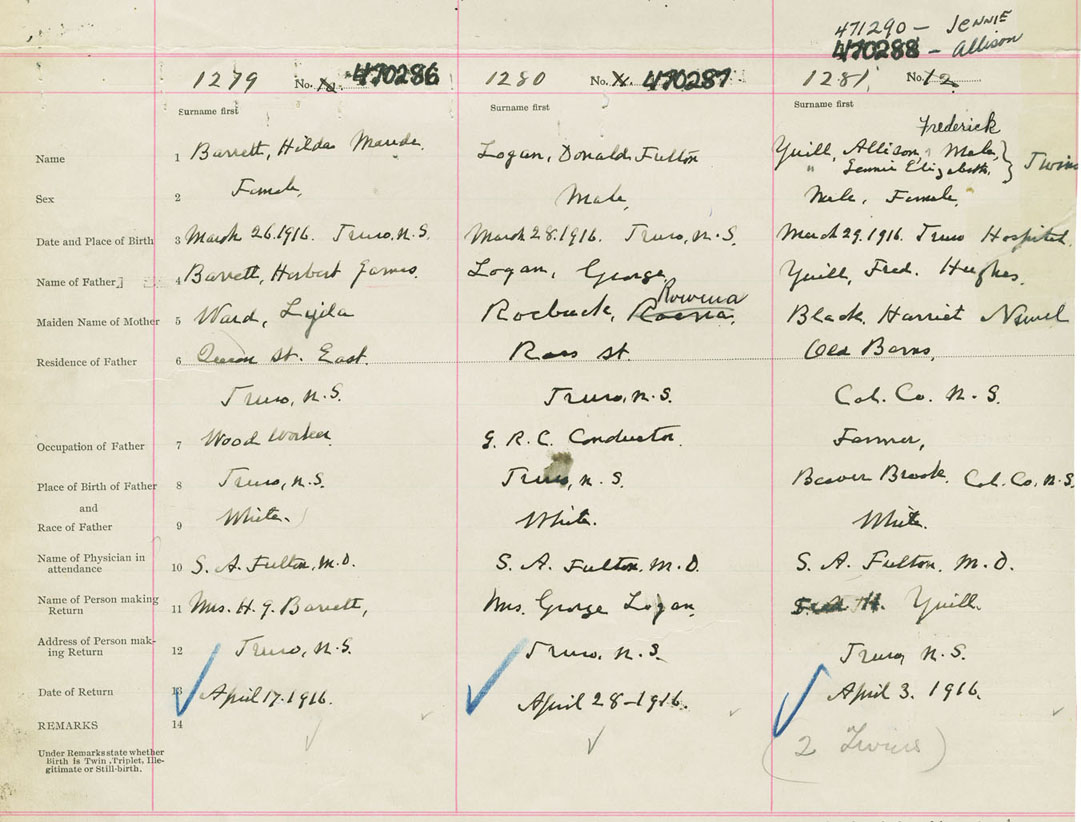 471290 - Jennie
470288 - Allison
1279 No. 470286 1280 No. 470287 1281 No. 12
Surname first Surname first Surname first
Frederick
Name 1 Barrett, Hilda Logan, Donald Fulton Yuill, Allison, Male, } Twins
" Jennie Elizabeth,
Sex 2 Female, Male, Male, Female,
Date and Place of Birth 3 March 26.1916. Truro, N.S. March 28.1916. Truro, N.S. March 29.1916. Truro Hospital.
Name of Father 4 Barrett, Herbert James. Logan, George, Yuill, Fred. Hughes.
Rowena
Maiden Name of Mother 5 Ward, Roebuck, Black, Harriet
Residence of Father 6 Queen St. East. Ross St. Old Barns,
Truro, N.S. Truro, N.S. Col. Co. N.S.
Occupation of Father 7 Wood Worker G. R. C. Conductor. Farmer,
Place of Birth of Father 8 Truro, N.S. Truro, N.S. Beaver Brook. Col. Co. N.S.
and
Race of Father 9 White. White. White.
Name of Physician in
attendance 10 S. A. Fulton, M.D. S. A. Fulton, M.D. S. A. Fulton, M.D.
Name of Person making
Return 11 Mrs. H. J. Barrett, Mrs. George Logan, Fred H. Yuill.
Address of Person mak-
ing Return 12 Truro, N.S. Truro, N.S. Truro, N.S.
Date of Return 13 April 17.1916. April 28-1916. April 3. 1916.
REMARKS 14
(2 Twins)
Under Remarks state whether
Birth is Twin, Triplet, Ille-
gitimate or Still-birth.